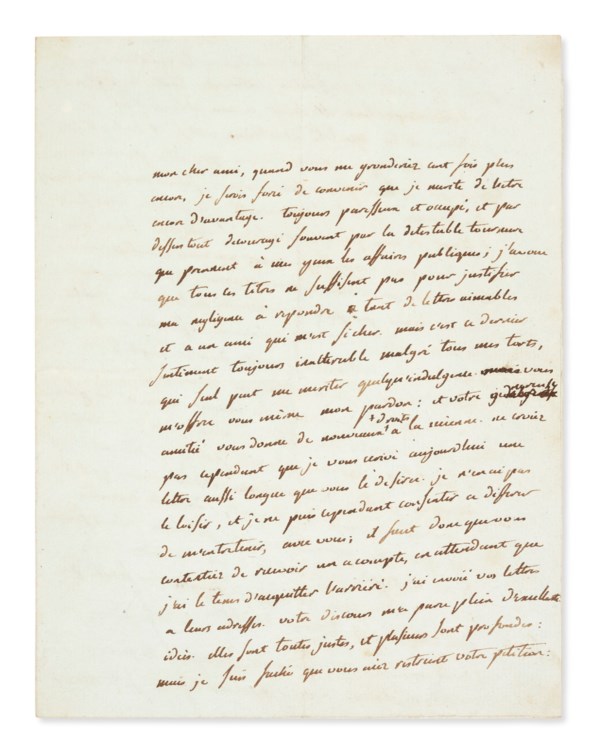 mon cher ami, quand vous me gronderiez cent fois plus
encore, je serois forcé de convenir que je merite de l'etre
encore d'avantage. toujours paresseux et occupé, et par
dessus tout decouragé souvent par la detestable tournure
que prennent à mes yeux les affaires publiques; j'avoue
que tous ces titres ne suffisent pas pour justifier
ma negligence à repondre à tant de lettres aimables
et a un ami qui m'est si cher. mais c'est ce dernier
sentiment toujours inalterable malgré tous mes torts,
qui seul peut me meriter quelqu'indulgence. mais vous
m'offrez vous même mon pardon: et votre genereuse
amitié vous donne de nouveaux droits à la mienne. ne croiez
pas cependant que je vous ecrive aujourdhui une
lettre aussi longue que vous le desirez. je n'en ai pas
le loisir, et je ne puis cependant consentir a differer
de m'entretenir, avec vous; il faut donc que vous
contentiez de recevoir un acompte, en attendant que
j'ai le tems d'acquitter l'arrieré. j'ai envoié vos lettres
a leurs adresses. votre discours m'a paru plein d'excellentes
idées. elles sont toutes justes, et plusieurs sont profondes:
mais je suis faché que vous aiez restreint votre petition: